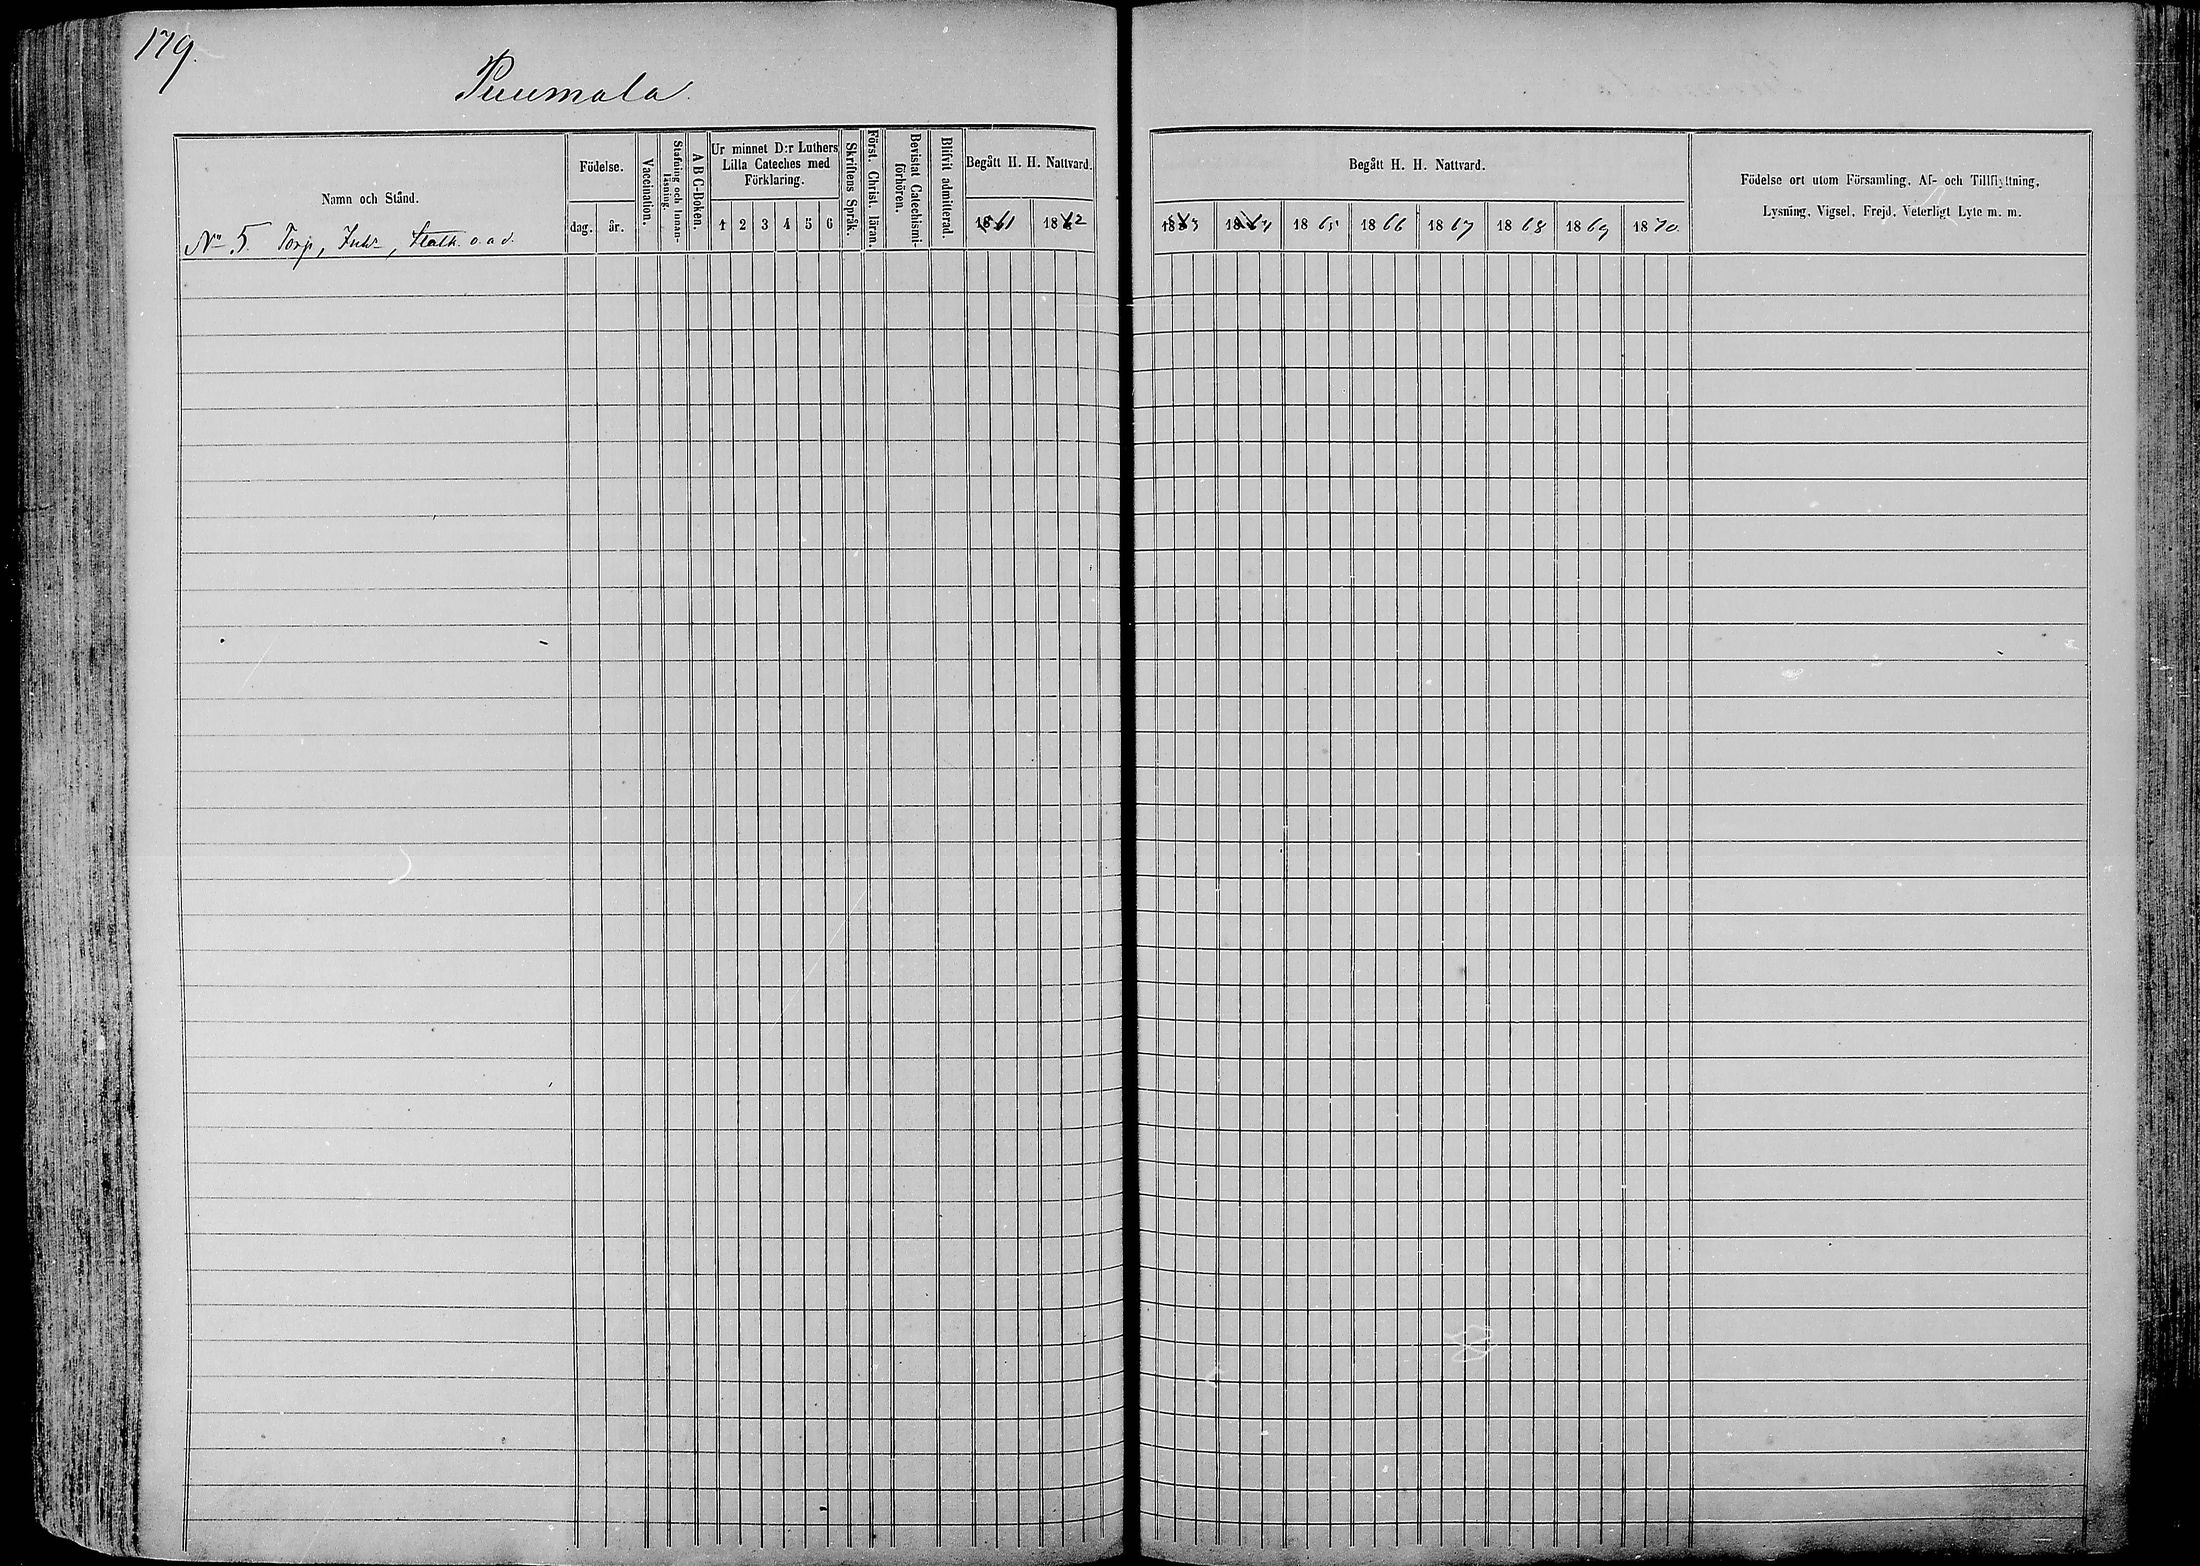 179.
Puumala.
Namn och Stånd.
No 5. Torp, Inh:, Statk. o. a. d.
Födelse.
dag. år.
Vaccination.
Stafning och Innan-
läsning.
A B C-Boken.
Ur minnet D:r Luthers
Lilla Cateches med
Förklaring.
1 2 3 4 5 6
Skriftens Språk.
Först. Christ. läran.
Bevistat Catechismi-
förhören.
Blifvit admitterad.
Begått H. H. Nattvard.
1861 1862
Begått H. H. Nattvard.
1863 1864 1865 1866 1867 1868 1869 1870.
Födelse ort utom Församling, Af- och Tillflyttning,
Lysning, Vigsel, Frejd, Veterligt Lyte m. m.